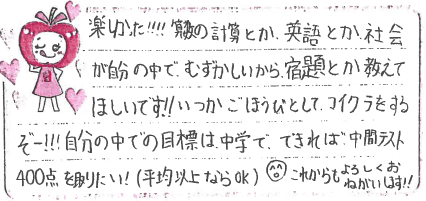 楽しかた!!!! 算数の計算とか、英語とか、社会
が自分の中で、むずかしいから、宿題とか教えて
ほしいです!! いつかごほうびとして、コイクラをする
ぞー!!! 自分の中での目標は、中学で、できれば中間テスト
400点を取りたい! (平均以上ならOK) これからもよろしくお
ねがいします!!